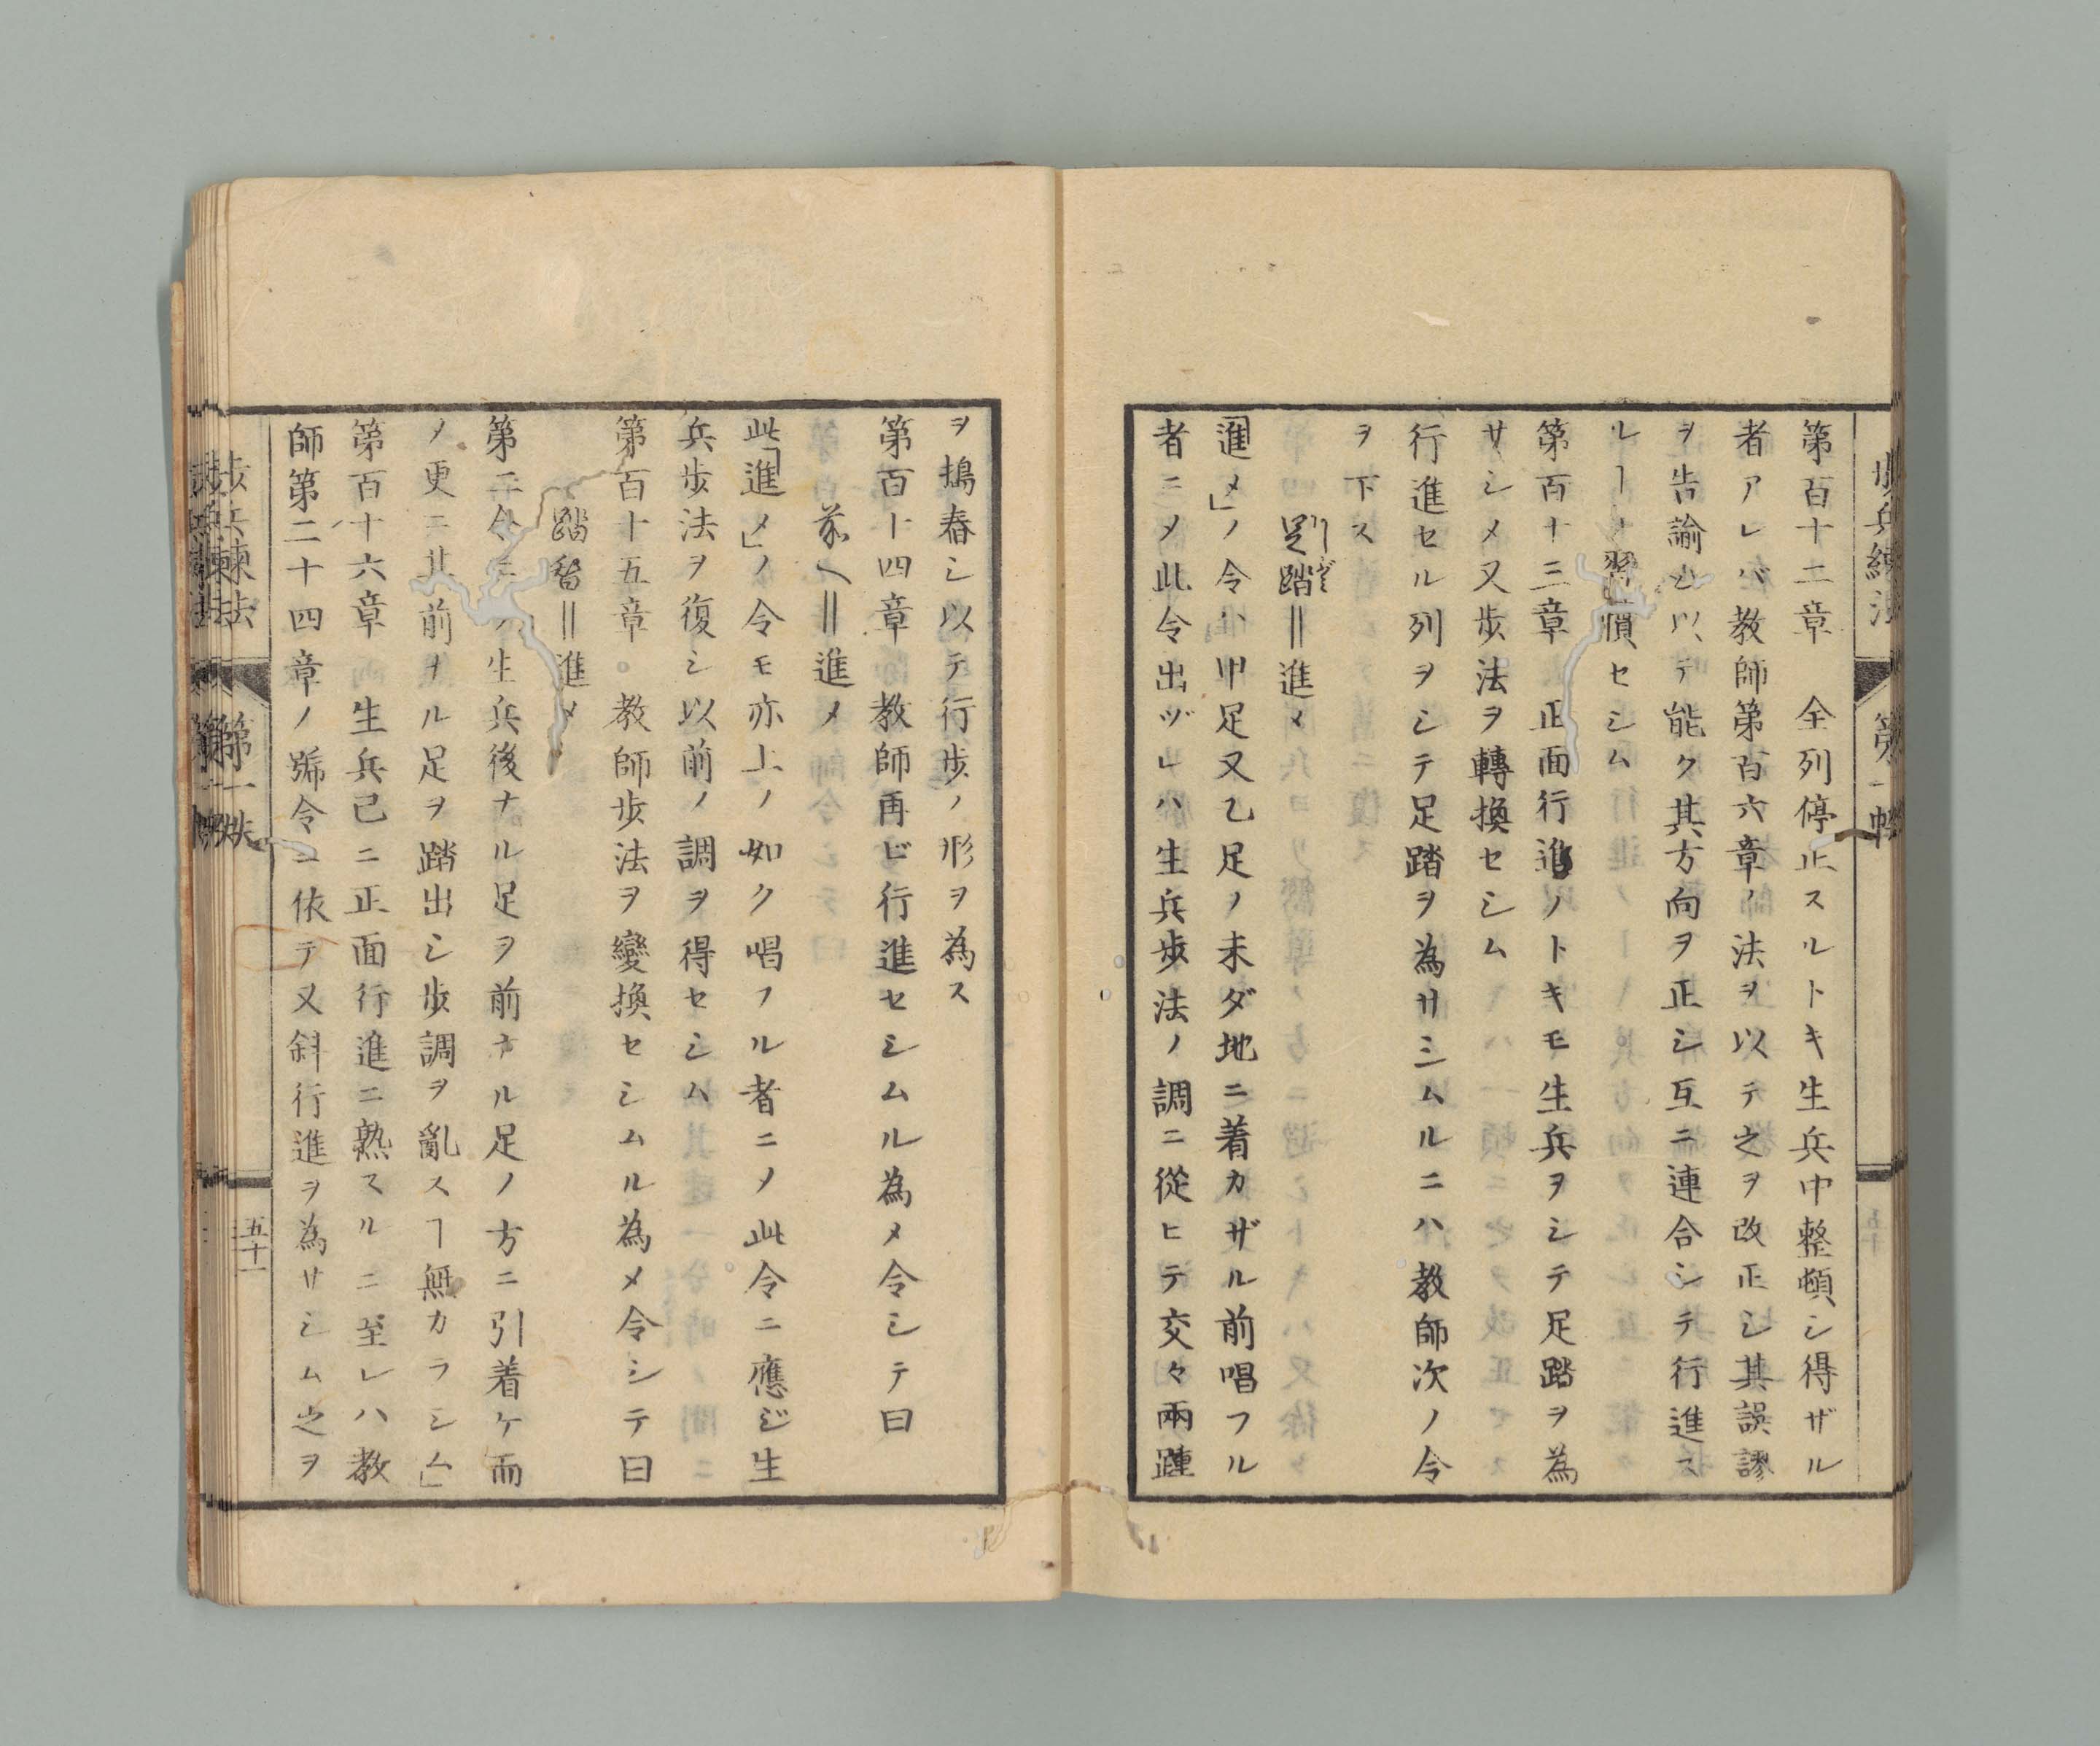 歩兵練法
第一
第百十二章　全列停止スルトキ生兵中整頓シ得ザル
者アレバ教師第百六章ノ法ヲ以テ之ヲ改正シ其誤謬
ヲ告諭シ以テ能ク其方向ヲ正シ互ニ連合シテ行進ス
ルヿヲ習慣セシム
第百十三章　正面行進ノトキモ生兵ヲシテ足踏ヲ為
サシメ又歩法ヲ轉換セシム
行進セル列ヲシテ足踏ヲ為サシムルニハ教師次ノ令
ヲ下ス
踏＝進メ
「進メ」ノ令ハ甲足又乙足ノ未ダ地ニ着カザル前唱フル
者ニメ此令出ヅレハ生兵歩法ノ調ニ從ヒテ交々兩踵
ヲ搗舂シ以テ行歩ノ形ヲ為ス
第百十四章　教師再ビ行進セシムル為メ令シテ曰
前ヘ＝進メ
此「進メ」ノ令モ亦上ノ如ク唱フル者ニメ此令ニ應ジ生
兵歩法ヲ復シ以前ノ調ヲ得セシム
第百十五章。教師歩法ヲ變換セシムル為メ令シテ曰
踏替＝進メ
第二令ニノ生兵後ナル足ヲ前ナル足ノ方ニ引着ケ而
ノ更ニ其前ナル足ヲ踏出シ歩調ヲ亂スヿ無カラシム」
第百十六章　生兵已ニ正面行進ニ熟スルニ至レハ教
師第二十四章ノ號令ニ依テ又斜行進ヲ為サシム之ヲ
歩兵練法
第一
五十一